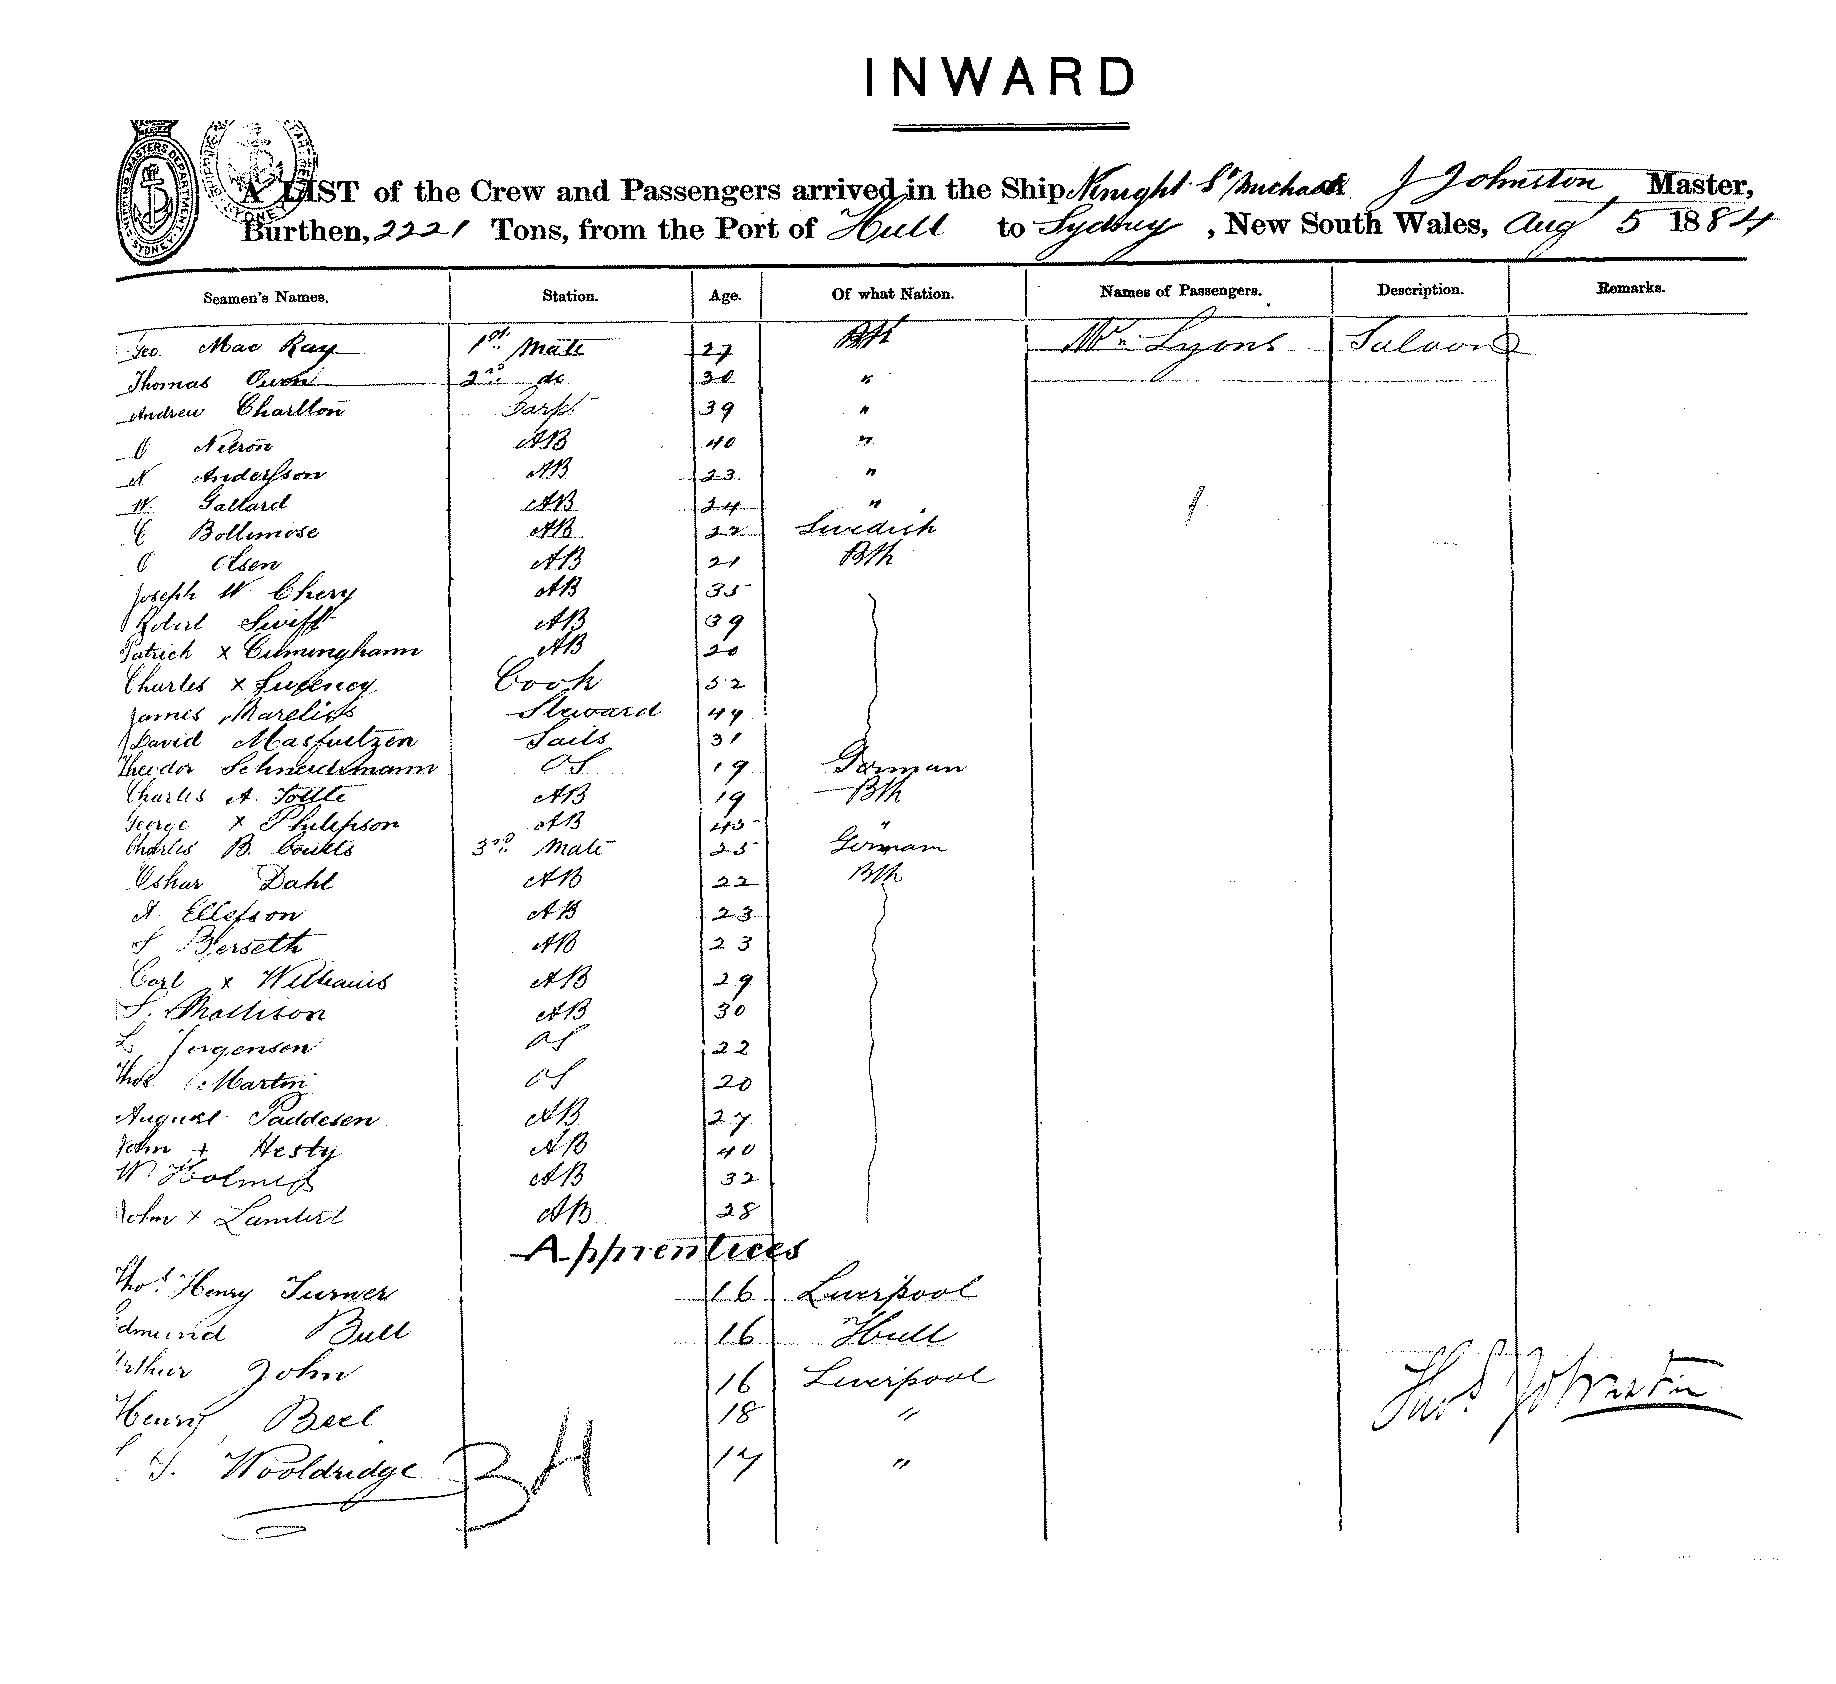 INWARD
A LIST of the Crew and Passengers arrived in the Ship Knight St Michael J Johnston Master,
Burthen, 2221 Tons, from the Port of Hull to Sydney, New South Wales, Aug 5 1884
Seamen's Names. Station. Age. Of what Nation. Names of Passengers. Description. Remarks.
Geo. Mac Ray 1st Mate 27 Bth Mr Lyons Saloon
Thomas Owen 2nd do 30 "
Andrew Charlton Carp. 39 "
O Nelson AB 40 "
N Andersson AB 23 "
W. Gallard AB 24 "
C AB 22 Swedish
O Olsen AB 21 Bth
Joseph W Chery AB 35
Robert Swift AB 39
Patrick x Cuminghann AB 20
Charles x Sweeney Cook 52
James Steward 44
David Sails 31
Theodor OS 19 German
Charles A. AB 19 Bth
George x Philipson AB 45 "
Charles B. Coutts 3rd Mate 25 German
Oskar Dahl AB 22 Bth
A. Ellefson AB 23
S Berseth AB 23
Carl x Williams AB 29
S. Mattison AB 30
L Jorgensen OS 22
Thos Martin OS 20
August Paddesen AB 27
John + Hesty AB 40
W Holmes AB 32
John x Lambert AB 28
Apprentices
Thos Henry Turner 16 Liverpool
Edmund Bull 16 Hull
Arthur John 16 Liverpool
Henry Beel 18 "
T. Wooldridge BH 17 "
Thos Johnston